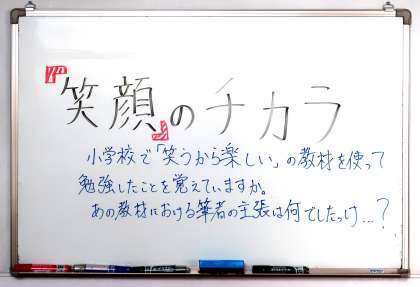 『笑顔』のチカラ
小学校で「笑うから楽しい」の教材を使って
勉強したことを覚えていますか。
あの教材における筆者の主張は何でしたっけ…？